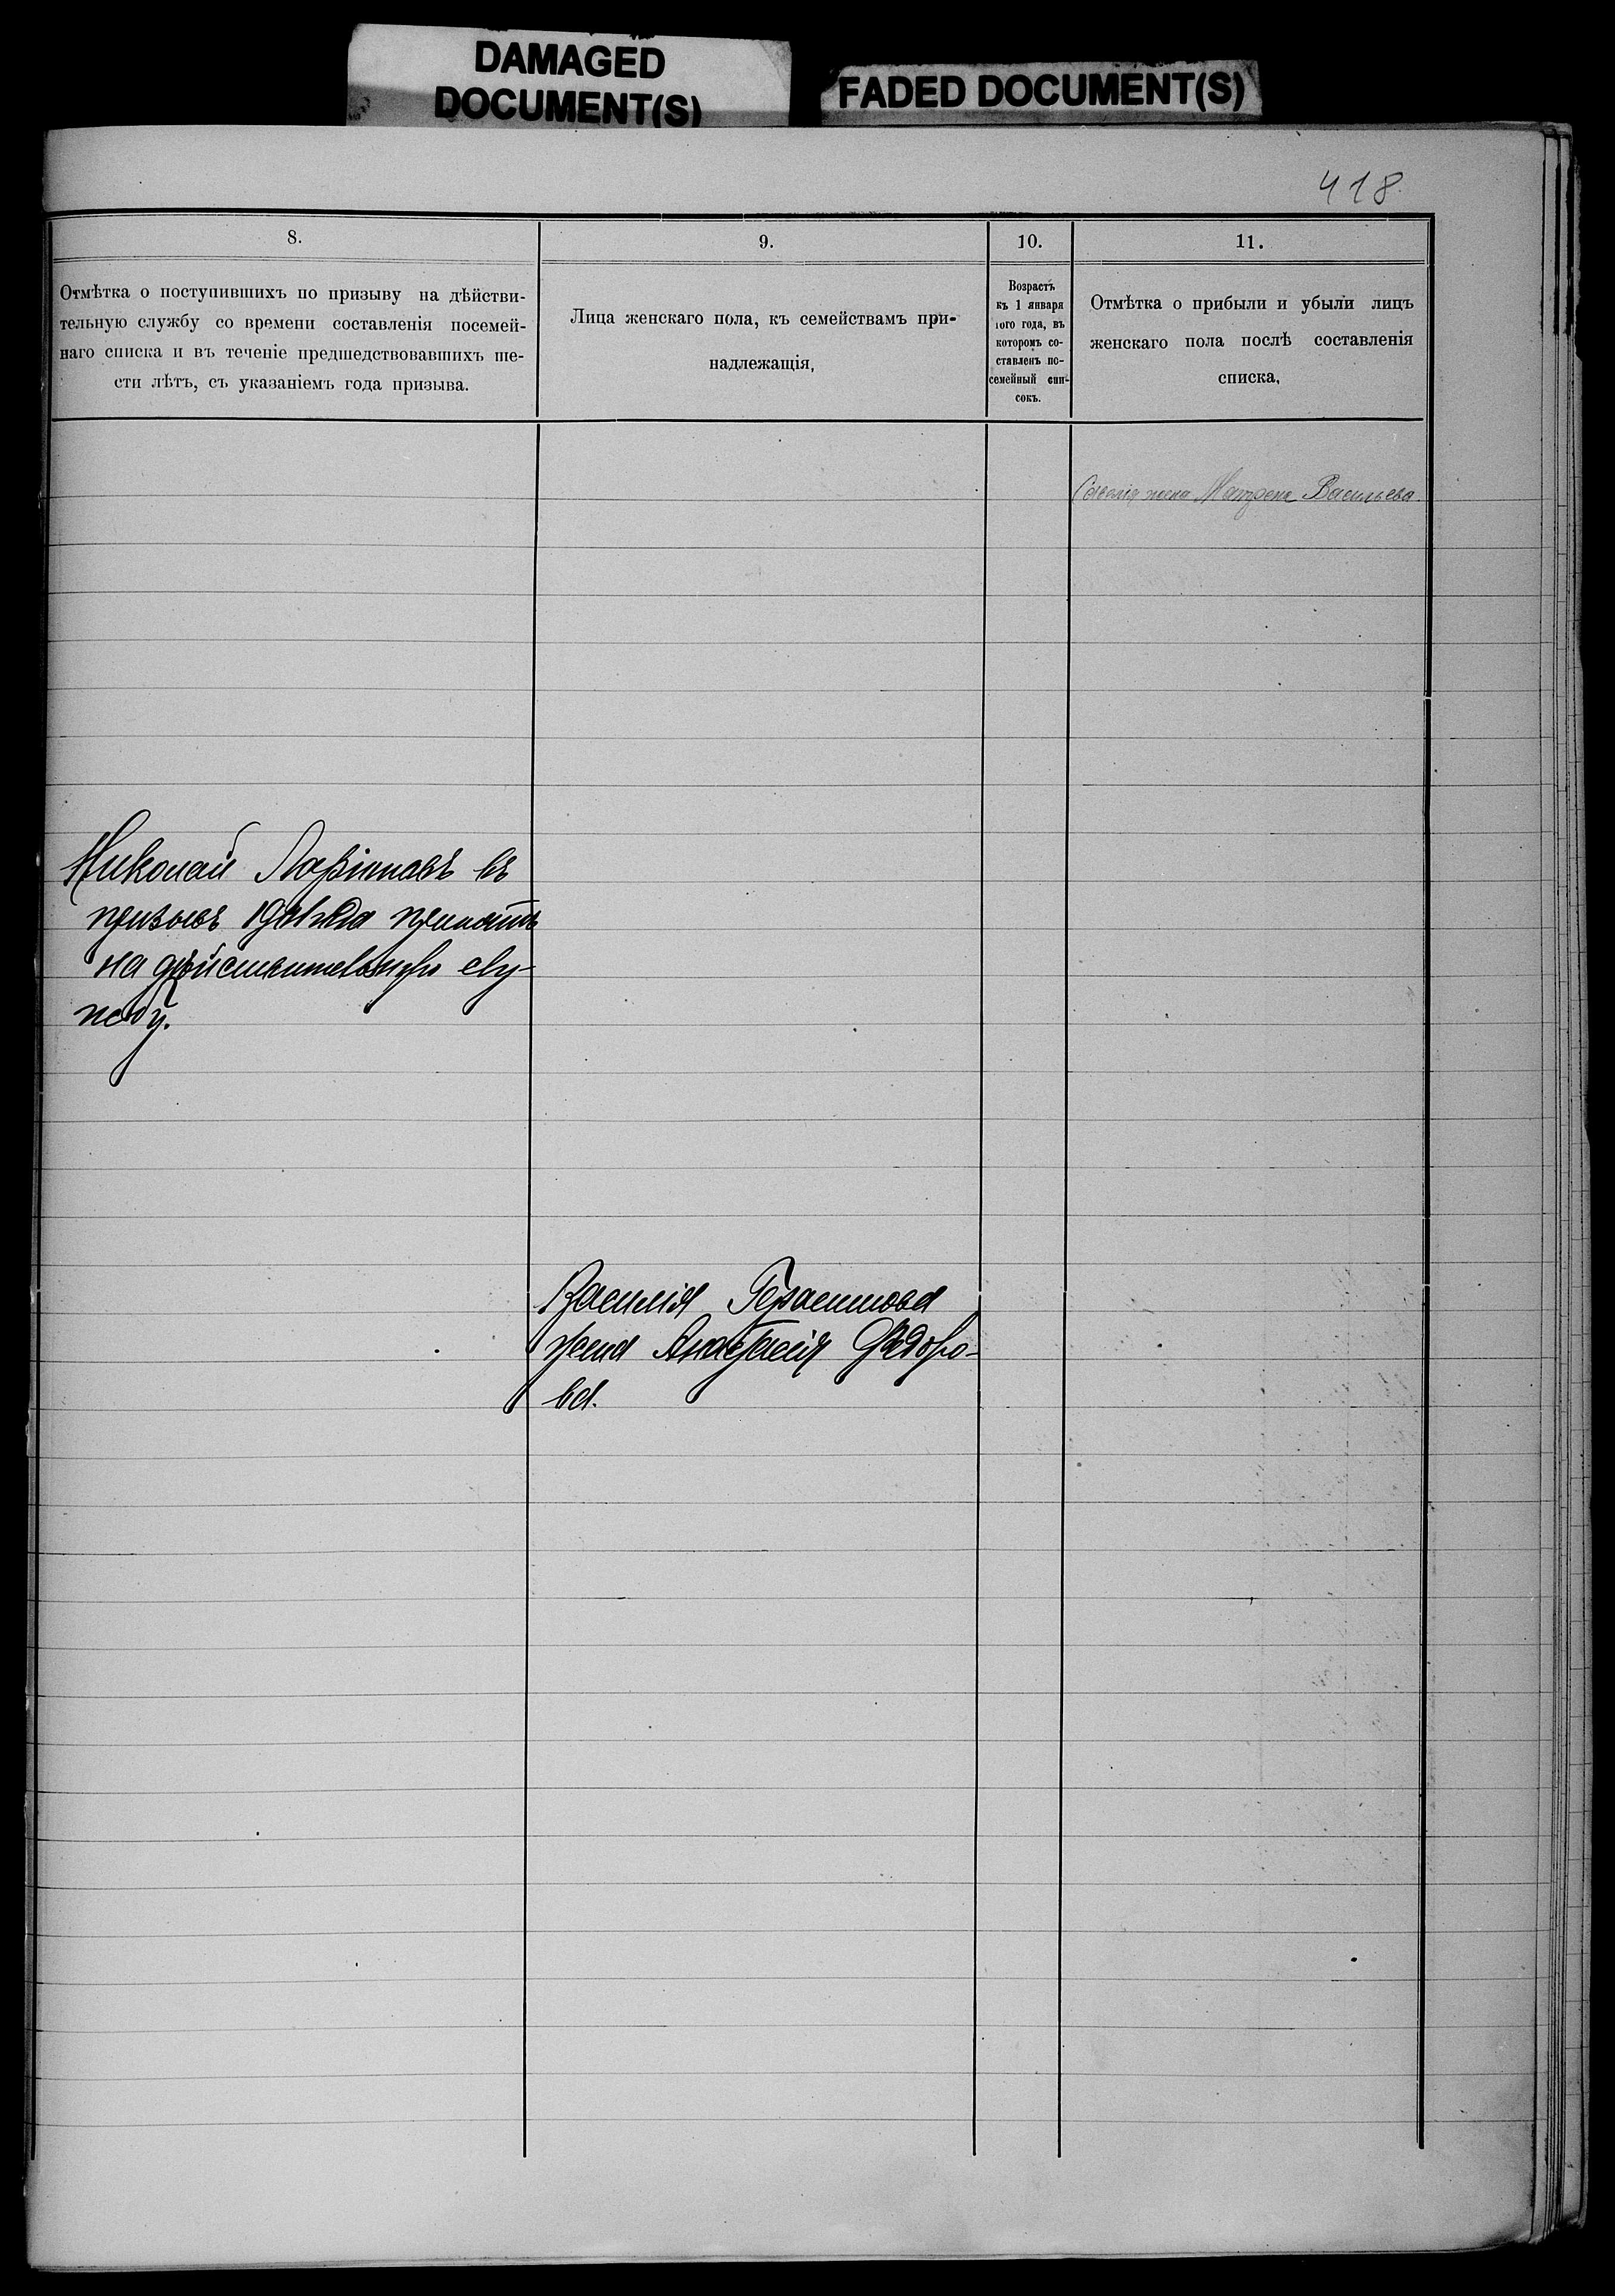 DAMAGED
DOCUMENT(S)
FADED DOCUMENT(S)
418
8.
9.
10.
11.
Отмѣтка о поступившихъ по призыву на дѣйстви-
тельную службу со времени составленія посемей-
наго списка и въ теченіе предшедствовавшихъ ше-
сти лѣтъ, съ указаніемъ года призыва.
Лица женскаго пола, къ семействамъ при-
надлежащія,
Возрастъ
къ 1 января
того года, въ
которомъ со-
ставленъ по-
семейный спи-
сокъ.
Отмѣтка о прибыли и убыли лицъ
женскаго пола послѣ составленія
списка,
жена Матрена Васильева
Николай въ
призывъ 1901 года принятъ
на дѣйствительную слу-
жбу.
Василія Герасимова
жена Анастасія Ѳедоро-
ва.